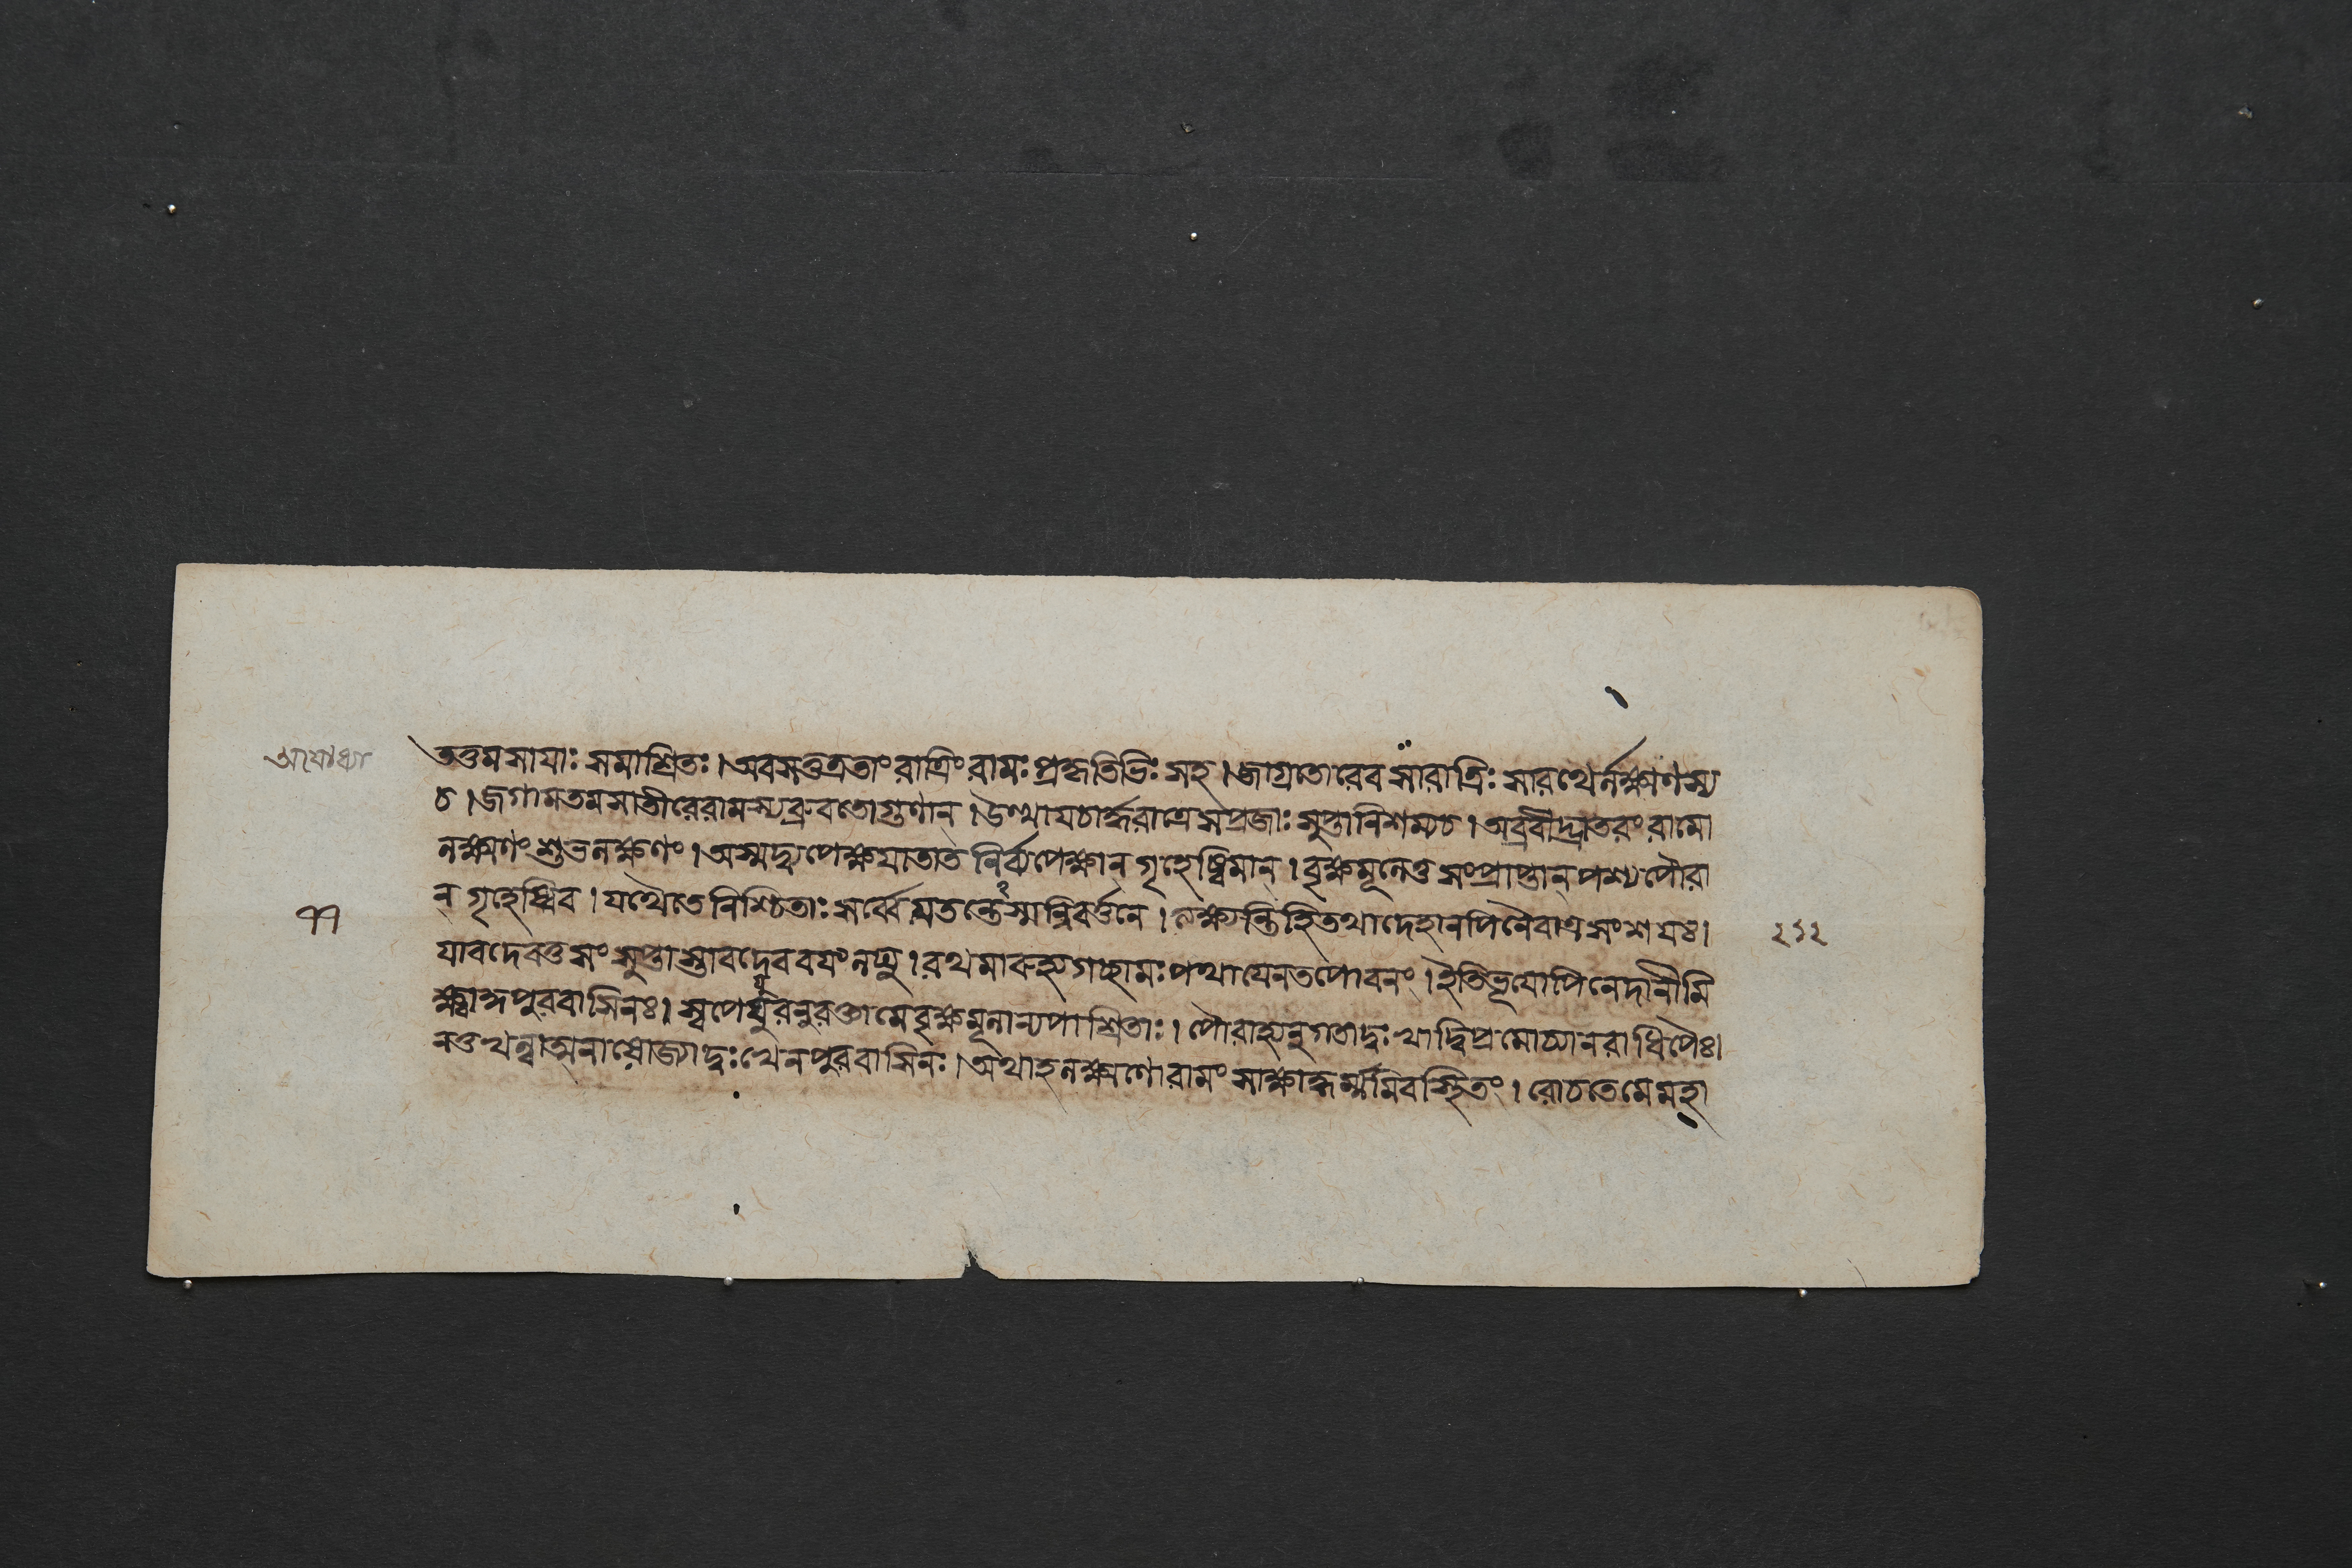 অযোধ্যা
ততুমসাযাঃ সমাশ্রিতঃ।অবসত্তত্রতাং রাত্রিং রামঃ প্রকৃতিভিঃ সহ।জাগ্রতোরেব সারাত্রিঃ সারথের্লক্ষ্মণস্য
চ।জগামতমসাতীরেরামস্যব্রুবতোগুণান।উত্থাযচার্দ্ধরাত্রেসপ্রজাঃ সুপ্তানিশম্যচ।অব্রবীদ্ভ্রাতরং রামো
লক্ষ্মণং শুভলক্ষণং।অস্মদ্ব্যপেক্ষযাতাত নির্ব্যপেক্ষান গৃহেষ্বিমান্।বৃক্ষমূলেতু সংপ্রাপ্তান্ পশ্যপৌরা
ন্ গৃহেষ্বিব।যথৈতে নিশ্চিতাঃ সর্ব্বে যতন্তেস্মন্নিবর্ত্তনে।ত্যক্ষ্যন্তিহিতথাদেহানপিনৈবাত্রসংশযঃ।
যাবদেবতু সংসুপ্তাস্তাবদেববযং লঘু।রথমারুহ্যগচ্ছামঃ পথাযেনতপোবনং।ইতিভূযোপিনেদানীমি
ক্ষ্বাকুপুরবাসিনঃ।স্বপেযুরনুরক্তামেবৃক্ষমূলান্যপাশ্রিতাঃ।পৌরাহ্যনুগতাদুঃখাদ্বিপ্রমোচ্যানরাধিপৈঃ।
নতুখল্বাত্মনাযোজ্যাদুঃখেনপুরবাসিনঃ।অথাহলক্ষ্মণোরামং সাক্ষাদ্ধর্ম্মমিবস্থিতং।রোচতেমেমহা
२१२